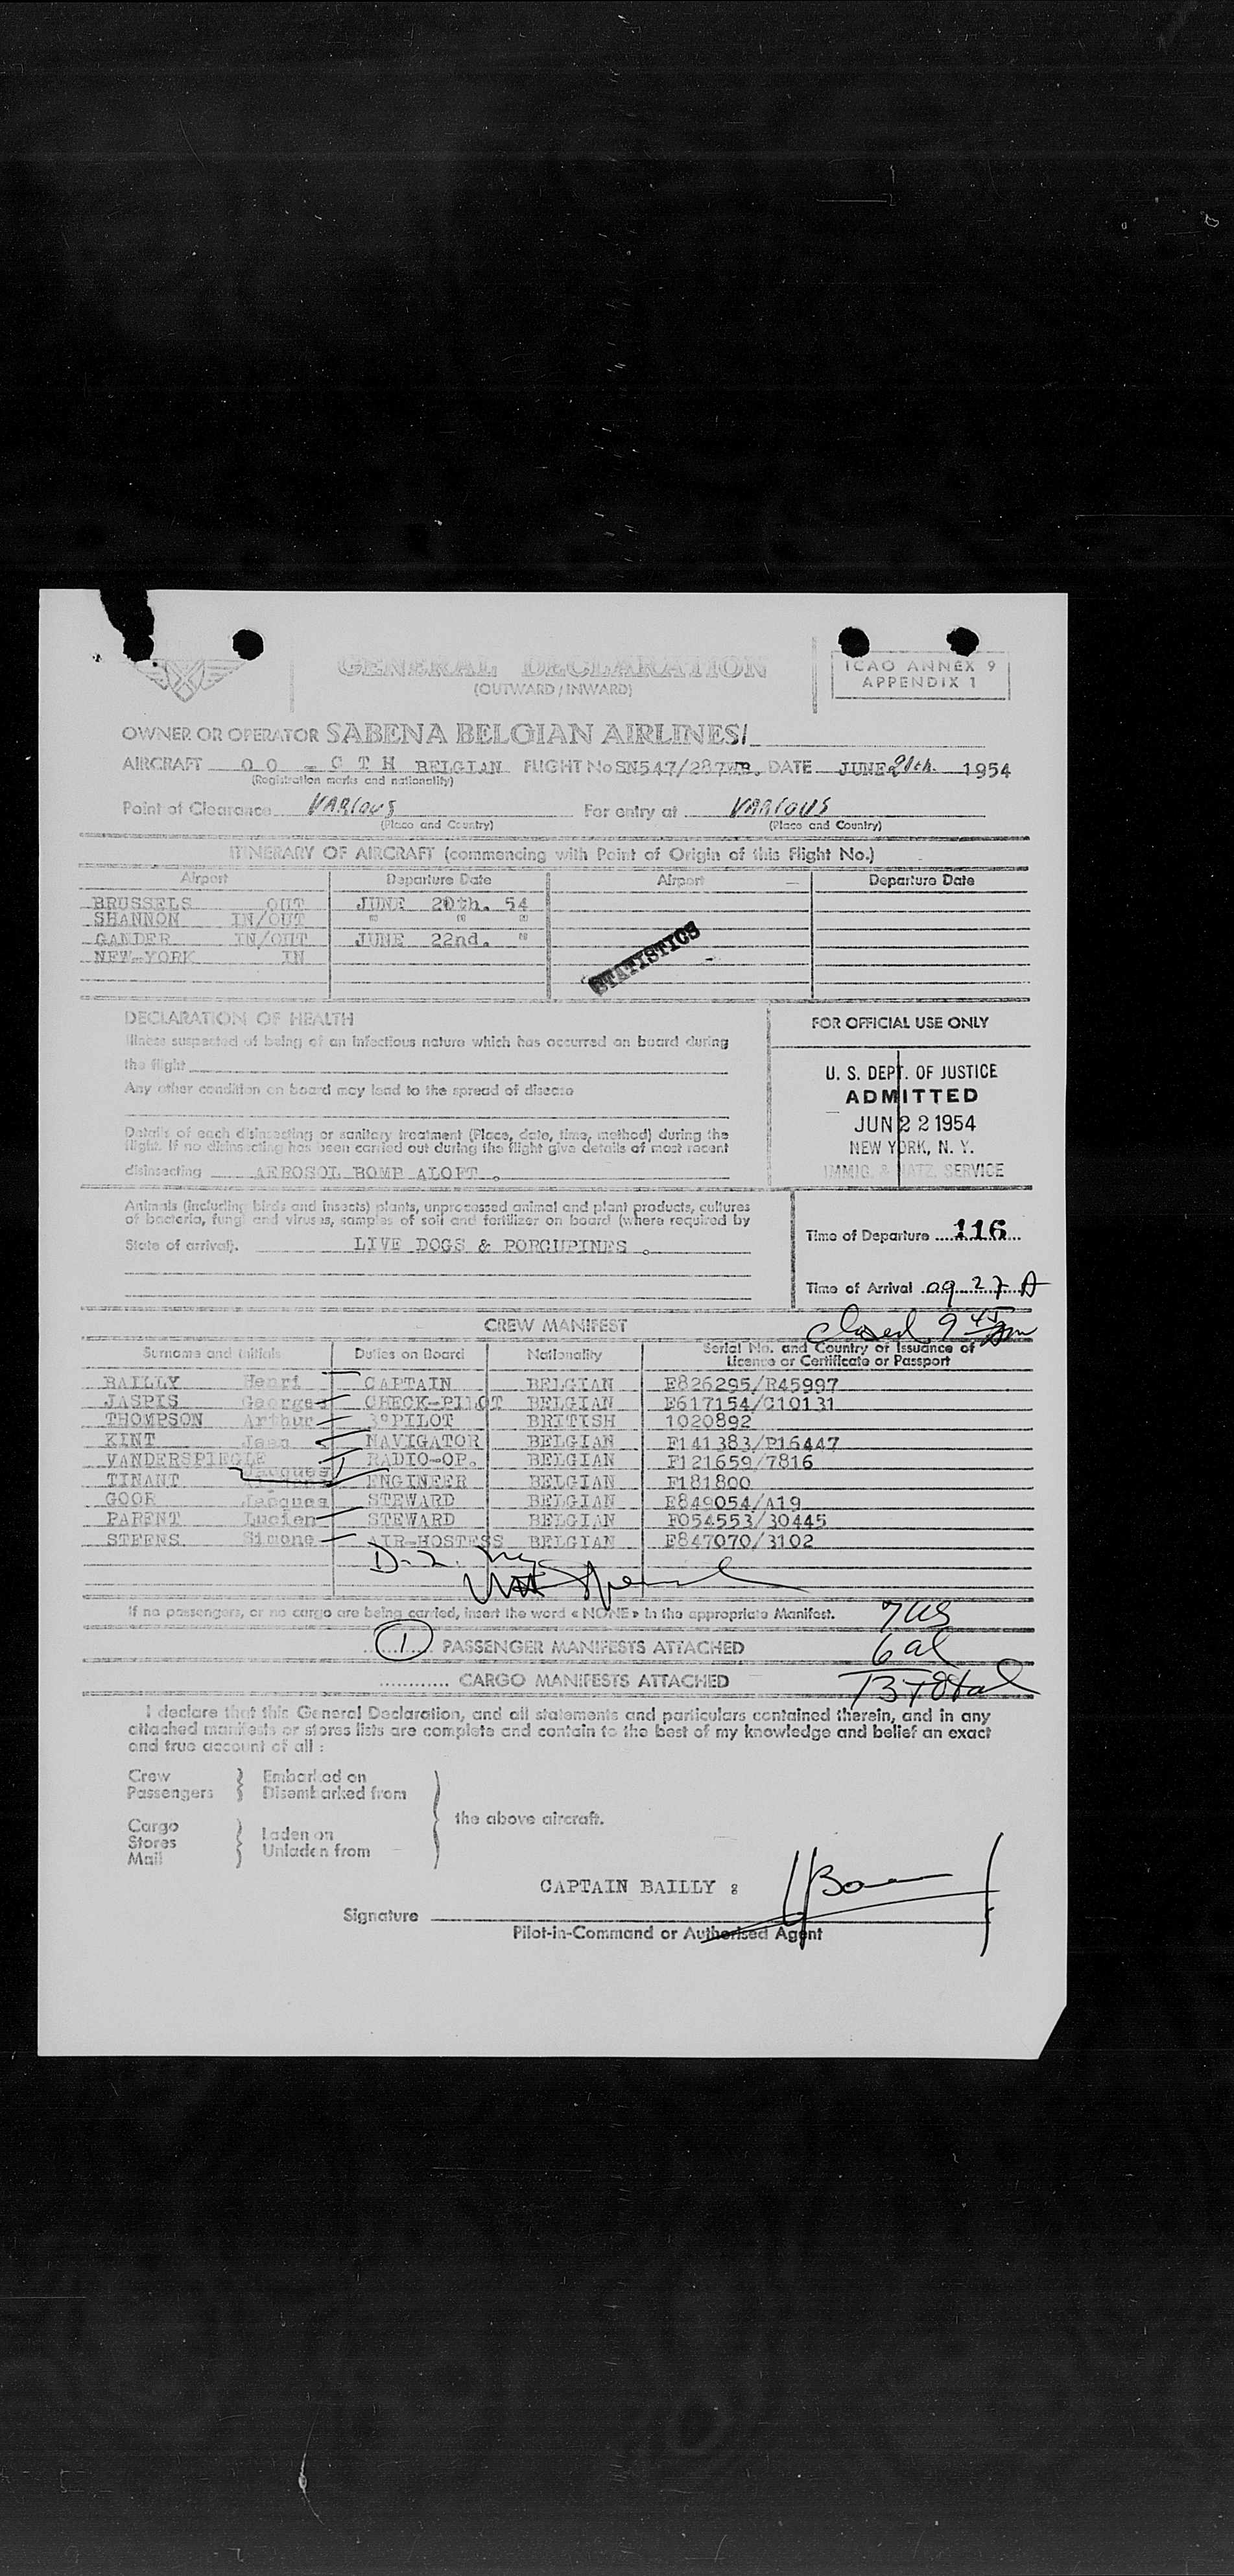 GENERAL DECLARATION
(OUTWARD / INWARD)
ICAO ANNEX 9
APPENDIX 1
OWNER OR OPERATOR SABENA BELGIAN AIRLINES/
AIRCRAFT OO - CTH BELGIAN FLIGHT No SN547/287 DATE JUNE 1954
(Registration marks and nationality)
Point of Clearance VARIOUS For entry at VARIOUS
(Place and Country) (Place and Country)
ITINERARY OF AIRCRAFT (commencing with Point of Origin of this Flight No.)
Airport Departure Date Airport Departure Date
BRUSSELS OUT JUNE 20th. 54
SHANNON IN/OUT " " "
GANDER IN/OUT JUNE 22nd. "
NEW-YORK IN
STATISTICS
DECLARATION OF HEALTH
Illness suspected of being of an infectious nature which has occurred on board during
the flight
Any other condition on board may lead to the spread of disease
Details of each disinsecting or sanitary treatment (Place, date, time, method) during the
flight. If no disinsecting has been carried out during the flight give details of most recent
disinsecting AEROSOL BOMB ALOFT .
FOR OFFICIAL USE ONLY
U. S. DEPT. OF JUSTICE
ADMITTED
JUN 22 1954
NEW YORK, N. Y.
IMMIG. & NATZ. SERVICE
Animals (including birds and insects) plants, unprocessed animal and plant products, cultures
of bacteria, fungi and viruses, samples of soil and fertilizer on board (where required by
State of arrival). LIVE DOGS & PORCUPINES .
Time of Departure 116
Time of Arrival 09 27 A
closed 9 45 am
CREW MANIFEST
Surname and Initials Duties on Board Nationality Serial No. and Country of Issuance of
Licence or Certificate or Passport
BAILLY Henri CAPTAIN BELGIAN E826295/R45997
JASPIS Georges CHECK-PILOT BELGIAN E617154/C10131
THOMPSON Arthur 3°PILOT BRITISH 1020892
KINT Jean NAVIGATOR BELGIAN F141383/P16447
VANDERSPIEGLE Jacques RADIO-OP. BELGIAN F121659/7816
TINANT ENGINEER BELGIAN F181800
GOOR Jacques STEWARD BELGIAN E849054/A19
PARENT Lucien STEWARD BELGIAN F054553/30445
STEENS Simone AIR-HOSTESS BELGIAN E847070/3102
If no passengers, or no cargo are being carried, insert the word « NONE » in the appropriate Manifest.
7 US
1 PASSENGER MANIFESTS ATTACHED
6 al
CARGO MANIFESTS ATTACHED
13 total
I declare that this General Declaration, and all statements and particulars contained therein, and in any
attached manifests or stores lists are complete and contain to the best of my knowledge and belief an exact
and true account of all :
Crew Embarked on
Passengers Disembarked from
the above aircraft.
Cargo
Stores Laden on
Mail Unladen from
CAPTAIN BAILLY :
Signature
Pilot-in-Command or Authorised Agent